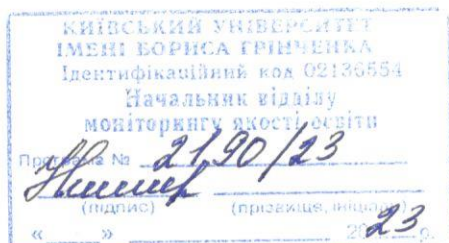 КИЇВСЬКИЙ УНІВЕРСИТЕТ
ІМЕНІ БОРИСА ГРІНЧЕНКА
Ідентифікаційний код 02136554
Начальник відділу
моніторингу якості освіти
Програма № 2190/23
(підпис) (прізвище, ініціали)
« » 2023 р.